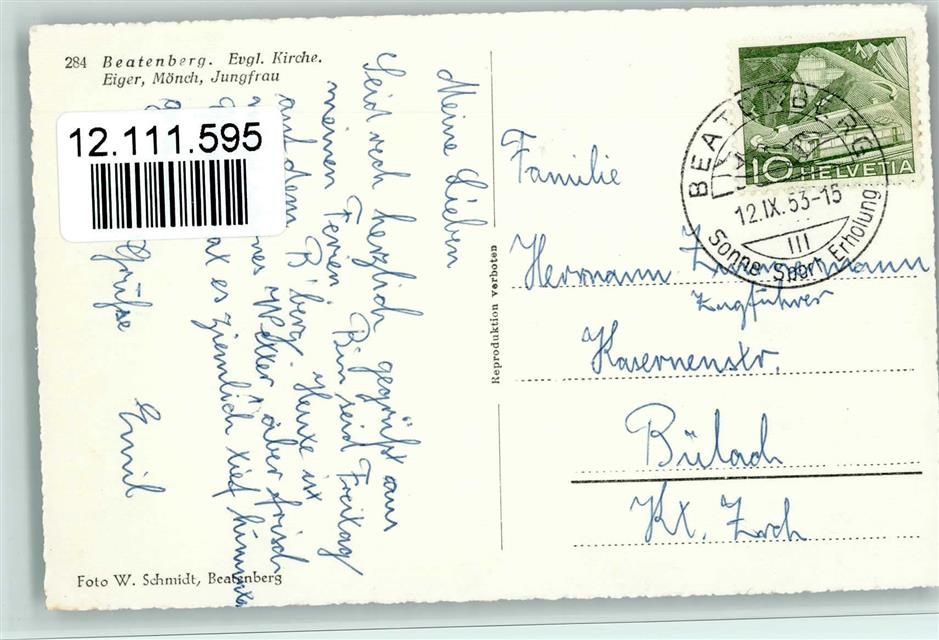 284 Beatenberg. Evgl. Kirche.
Eiger, Mönch, Jungfrau
12.111.595
Meine Lieben
Seid recht herzlich gegrüßt aus
meinen Ferien. Bin seid Freitag
auf dem B'berg. Heute ist
Wetter, aber frisch
es ziemlich tief hinunter
Grüsse Emil
Foto W. Schmidt, Beatenberg
Reproduktion verboten
BEATENBERG
12.IX.53-15
III
Sonne Sport Erholung
10 HELVETIA
Familie
Hermann Zimmermann
Zugführer
Kasernenstr.
Bülach
Kt. Zrch